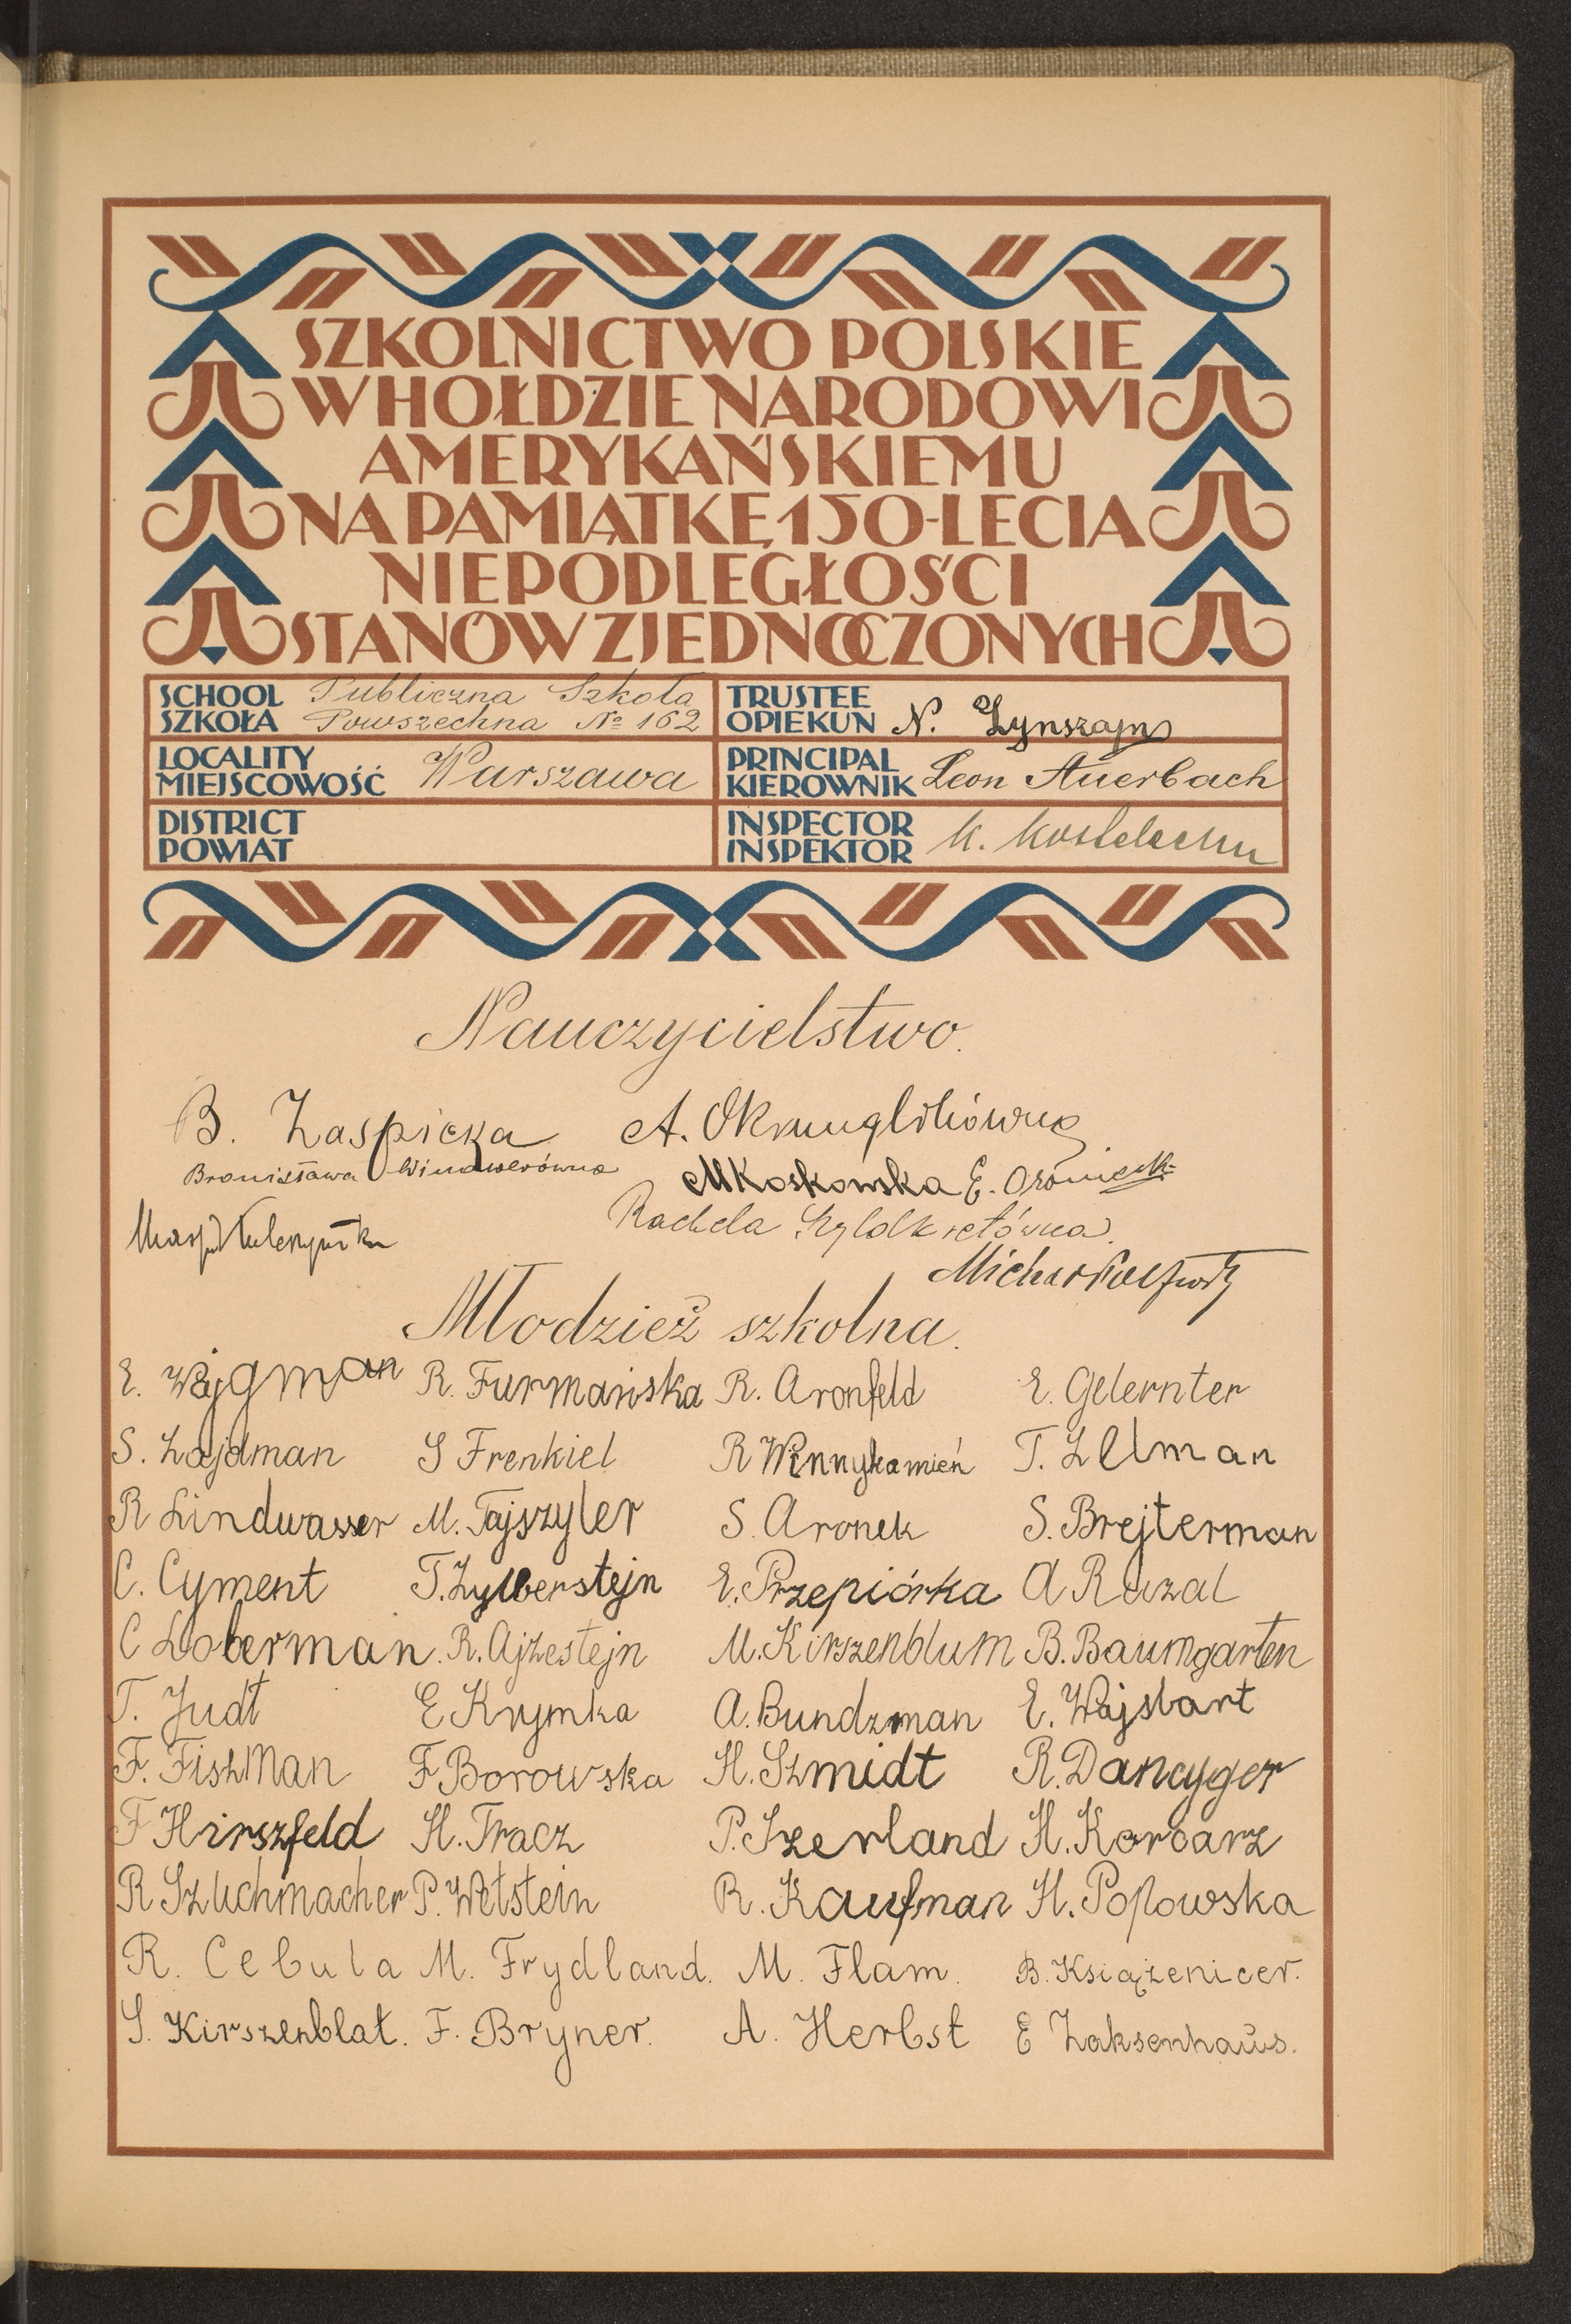 SZKOLNICTWO POLSKIE
W HOŁDZIE NARODOWI
AMERYKAŃSKIEMU
NA PAMIĄTKĘ 150-LECIA
NIEPODLEGŁOŚCI
STANÓW ZJEDNOCZONYCH
SCHOOL
SZKOŁA
Publiczna Szkoła
Powszechna № 162
TRUSTEE
OPIEKUN N. Zynszajn
LOCALITY
MIEJSCOWOŚĆ Warszawa
PRINCIPAL
KIEROWNIK Leon Auerbach
DISTRICT
POWIAT
INSPECTOR
INSPEKTOR K.
Nauczycielstwo.
B. Zaspicka A.
Bronisława Windwerówna MKoskowska E.
Rachela
Młodzież szkolna.
E. Wajgman R. Furmańska R. Aronfeld E. Gelernter
S. Zajdman S Frenkiel R Winnykamień T. Zelman
R Lindwasser M. Tajszyler S. Aronek S. Brejterman
C. Cyment T. Zylberstejn E. Przepiórka A Ruzal
C Loberman. R. Ajzestejn M. Kirszenblum B. Baumgarten
T. Judt E Krymka A. Bundzman E. Wajsbart
F. Fiszman F Borowska H. Szmidt R. Dancyger
F Hirszfeld H. Tracz P. Szerland H. Korcarz
R Szuchmacher P. Wetstein R. Kaufman H. Popowska
R. Cebula M. Frydland. M. Flam. B. Książenicer.
S. Kirszenblat. F. Bryner. A. Herbst E Zaksenhaus.